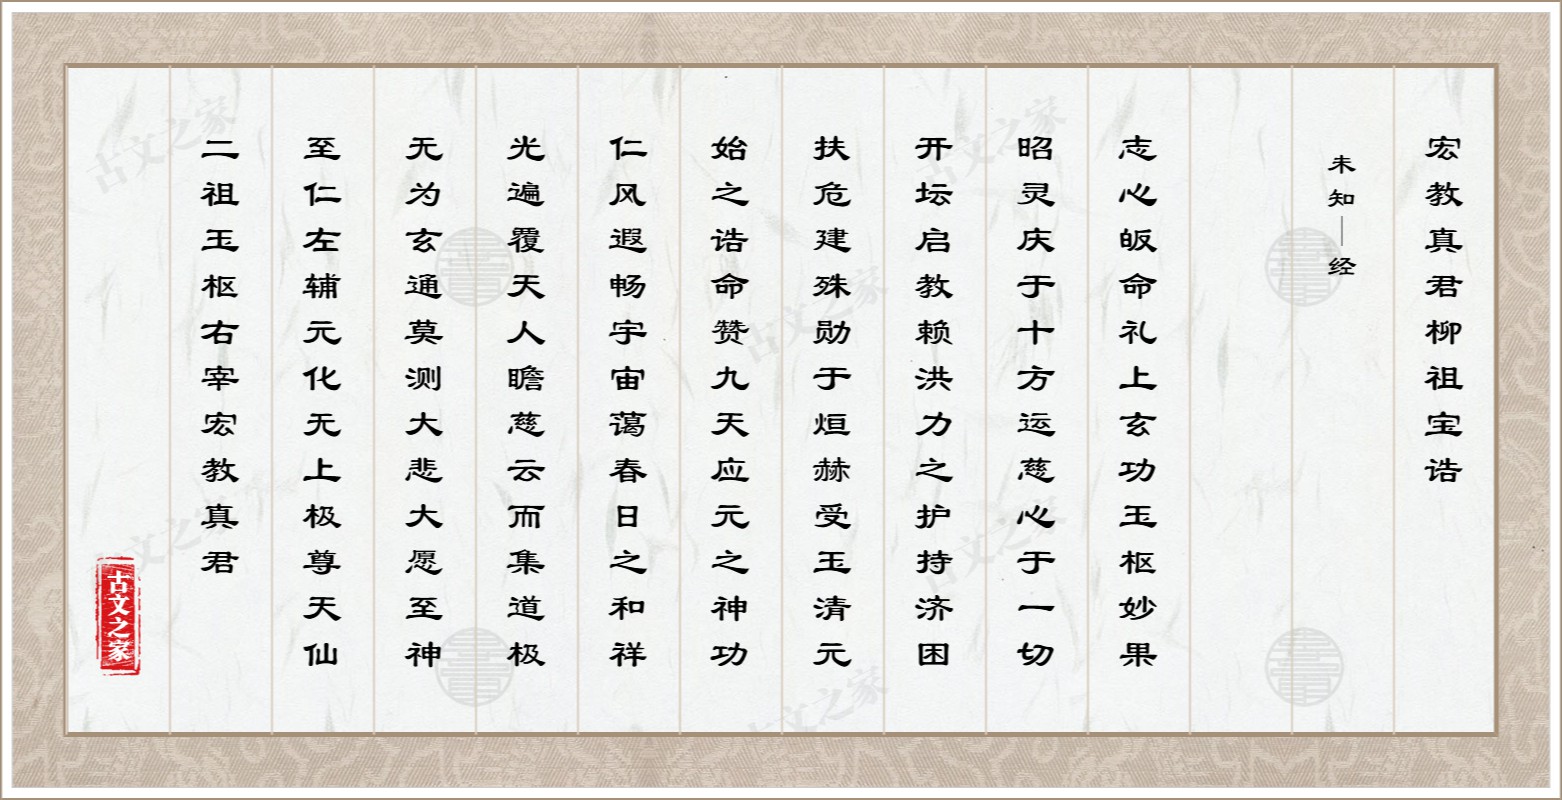 宏教真君柳祖宝诰
未知｜经
志心皈命礼上玄功玉枢妙果
昭灵庆于十方运慈心于一切
开坛启教赖洪力之护持济困
扶危建殊勋于烜赫受玉清元
始之诰命赞九天应元之神功
仁风遐畅宇宙蔼春日之和祥
光遍覆天人瞻慈云而集道极
无为玄通莫测大悲大愿至神
至仁左辅元化无上极尊天仙
二祖玉枢右宰宏教真君
古文之家
古文之家
古文之家
古文之家
古文之家
古文之家
古文之家